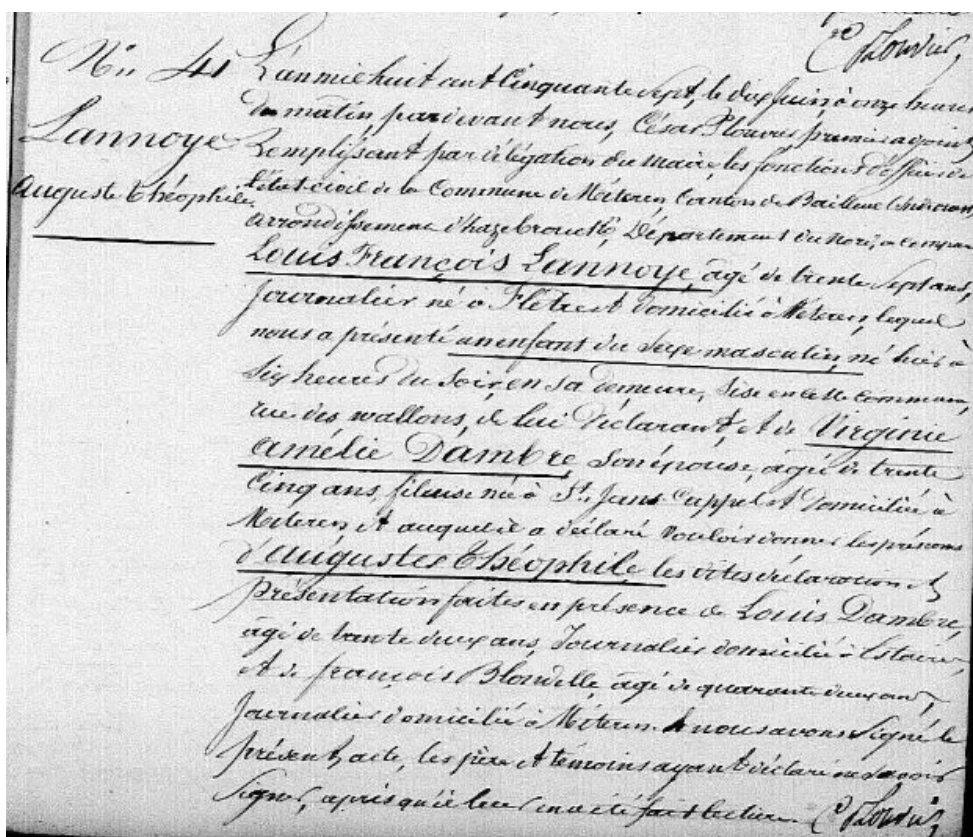 N° 41
Lannoye
Auguste théophile
L'an mil huit cent Cinquante Sept, le dix Juin à onze heures
du matin par devant nous, César Plouvier premier adjoint
Remplissant par délégation du maire, les fonctions d'officier de
l'état civil de la Commune de Méteren, Canton de Bailleul
arrondissement d'hazebrouck, Département du Nord, a comparu
Louis François Lannoye, âgé de trente Sept ans,
Journalier né à Flêtre et domicilié à Méteren, lequel
nous a présenté un enfant du Sexe masculin, né hier à
Six heures du Soir, en sa demeure, Sise en cette Commune,
rue des wallons, de lui Déclarant, et de Virginie
Amélie Dambre, Son épouse, agée de trente
Cinq ans, fileuse née à St. Jans Cappel et domiciliée à
Méteren et auquel il a déclaré vouloir donner les prénoms
d'Auguste théophile, les dites déclaration et
présentation faites en présence de Louis Dambre,
âgé de trente deux ans, Journalier domicilié à Estaires
et de françois Blondelle, agé de quarante deux ans,
Journalier domicilié à Méteren. et nous avons Signé le
présent acte, les père et témoins ayant déclaré ne savoir
Signer, après qu'il leur en a été fait lecture. C Plouvier